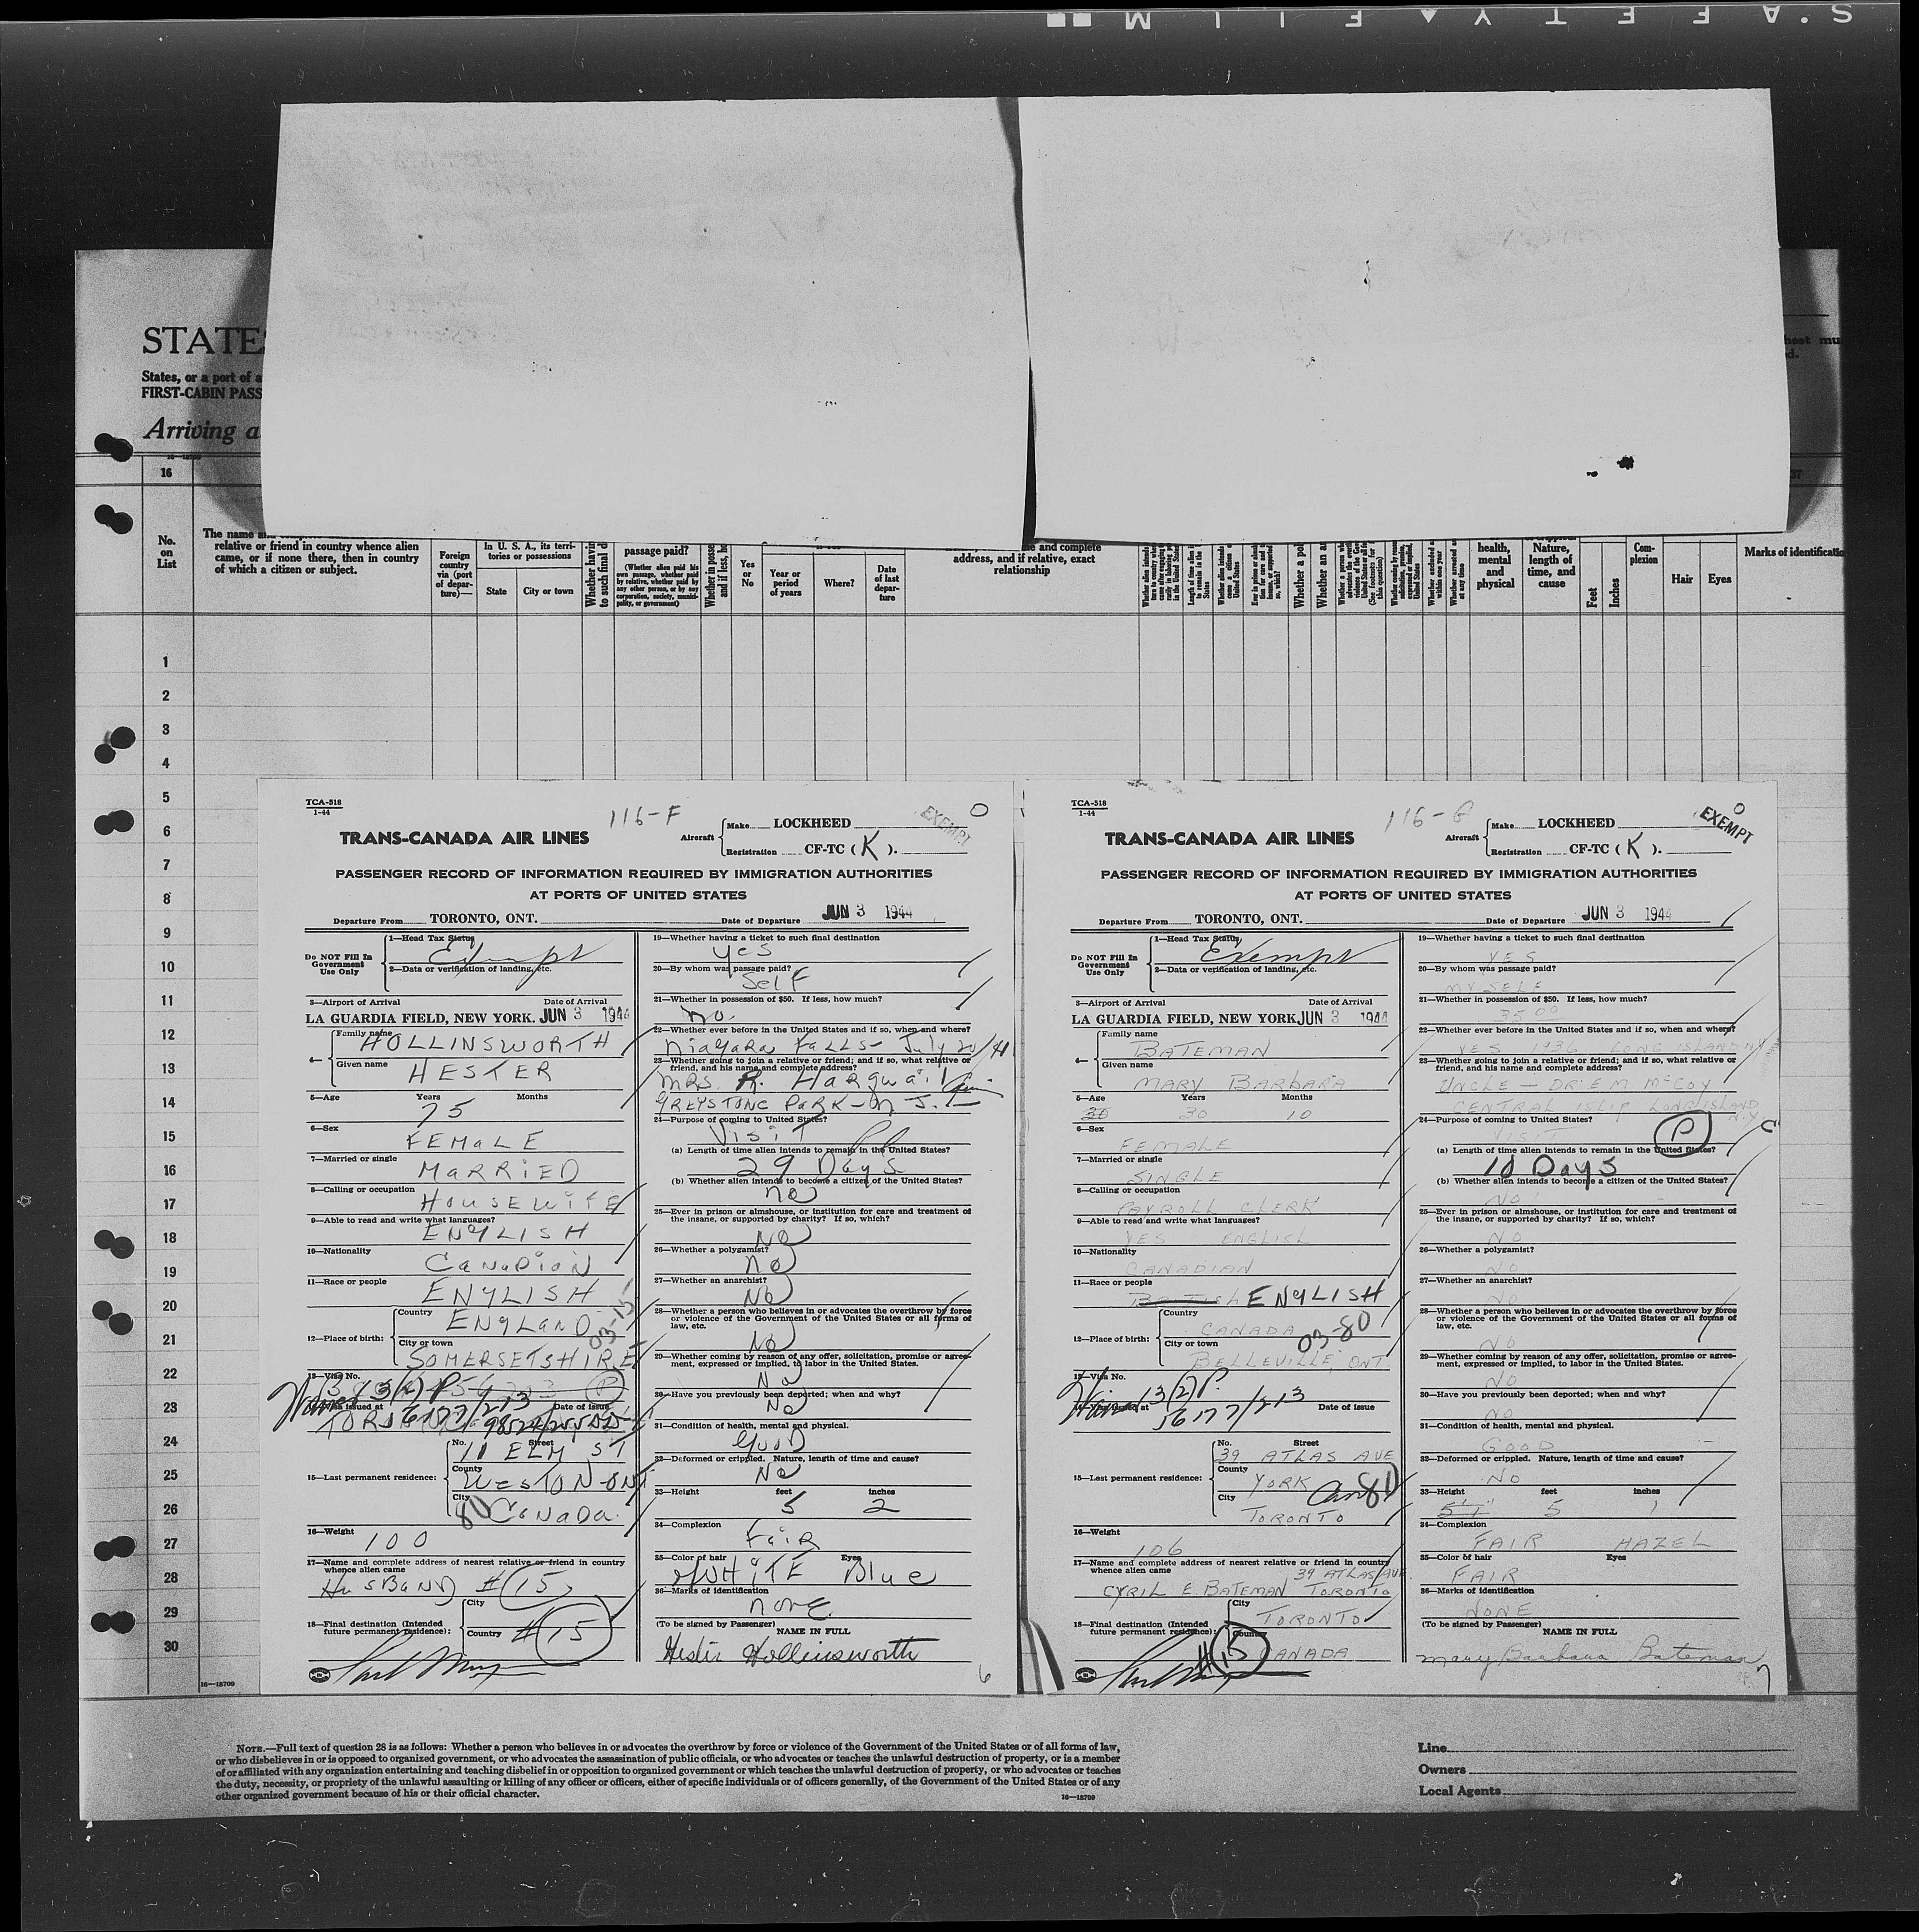 SAFETY FILM
STATE
States, or a port of a
FIRST-CABIN PASS
Arriving a
16
No. on List
The name
relative or friend in country whence alien
came, or if none there, then in country
of which a citizen or subject.
Foreign country via (port of departure)—
In U. S. A., its territories or possessions
State
City or town
Whether havin
to such final d
passage paid?
(Whether alien paid his own passage, whether paid by relative, whether paid by any other person, or by any corporation, society, municipality, or government)
Whether in posse
and if less, ho
Yes or No
Year or period of years
Where?
Date of last departure
me and complete
address, and if relative, exact
relationship
Whether a pol
Whether an an
health, mental and physical
Nature, length of time, and cause
Feet
Inches
Complexion
Hair
Eyes
Marks of identificatio
1
2
3
4
5
6
7
8
9
10
11
12
13
14
15
16
17
18
19
20
21
22
23
24
25
26
27
28
29
30
16—18709
TCA-518
1-44
116-F
TRANS-CANADA AIR LINES
Aircraft
Make LOCKHEED
Registration CF-TC ( K ).
EXEMPT
O
PASSENGER RECORD OF INFORMATION REQUIRED BY IMMIGRATION AUTHORITIES
AT PORTS OF UNITED STATES
Departure From TORONTO, ONT. Date of Departure JUN 3 1944
Do NOT Fill In Government Use Only
1—Head Tax Status
Exempt
2—Data or verification of landing, etc.
3—Airport of Arrival Date of Arrival
LA GUARDIA FIELD, NEW YORK. JUN 3 1944
4— Family name
HOLLINSWORTH
Given name
HESTER
5—Age Years Months
75
6—Sex
FEMALE
7—Married or single
MARRIED
8—Calling or occupation
HOUSEWIFE
9—Able to read and write what languages?
ENGLISH
10—Nationality
CANADIAN
11—Race or people
ENGLISH
12—Place of birth: Country
ENGLAND
03-15
City or town
SOMERSETSHIRE
13—Visa No.
13(2) P
Date of issue
56177/213
15—Last permanent residence: No. Street
11 ELM ST
County
WESTON-ONT
City
80 CANADA.
16—Weight
100
17—Name and complete address of nearest relative or friend in country
whence alien came
HUSBAND #15
18—Final destination (Intended future permanent residence):
City
Country # 15
19—Whether having a ticket to such final destination
yes
20—By whom was passage paid?
Self
21—Whether in possession of $50. If less, how much?
no.
22—Whether ever before in the United States and if so, when and where?
Niagara Falls - July 20/41
23—Whether going to join a relative or friend; and if so, what relative or
friend, and his name and complete address?
MRS. R. Hargwail
GREYSTONE PARK - N.J.
24—Purpose of coming to United States?
Visit
(a) Length of time alien intends to remain in the United States?
29 Days
(b) Whether alien intends to become a citizen of the United States?
no
25—Ever in prison or almshouse, or institution for care and treatment of
the insane, or supported by charity? If so, which?
No
26—Whether a polygamist?
no
27—Whether an anarchist?
No
28—Whether a person who believes in or advocates the overthrow by force
or violence of the Government of the United States or all forms of
law, etc.
No
29—Whether coming by reason of any offer, solicitation, promise or agree-
ment, expressed or implied, to labor in the United States.
No
30—Have you previously been deported; when and why?
No
31—Condition of health, mental and physical.
Good
32—Deformed or crippled. Nature, length of time and cause?
No
33—Height feet inches
5 2
34—Complexion
Fair
35—Color of hair Eyes
WHITE Blue
36—Marks of identification
none
(To be signed by Passenger)
NAME IN FULL
Hester Hollinsworth
6
TCA-518
1-44
116-G
TRANS-CANADA AIR LINES
Aircraft
Make LOCKHEED
Registration CF-TC ( K ).
O
EXEMPT
PASSENGER RECORD OF INFORMATION REQUIRED BY IMMIGRATION AUTHORITIES
AT PORTS OF UNITED STATES
Departure From TORONTO, ONT. Date of Departure JUN 3 1944
Do NOT Fill In Government Use Only
1—Head Tax Status
Exempt
2—Data or verification of landing, etc.
3—Airport of Arrival Date of Arrival
LA GUARDIA FIELD, NEW YORK JUN 3 1944
4— Family name
BATEMAN
Given name
MARY BARBARA
5—Age Years Months
30 30 10
6—Sex
FEMALE
7—Married or single
SINGLE
8—Calling or occupation
PAYROLL CLERK
9—Able to read and write what languages?
YES ENGLISH
10—Nationality
CANADIAN
11—Race or people
British ENGLISH
12—Place of birth: Country
CANADA
03-80
City or town
BELLEVILLE, ONT
13—Visa No.
13(2) P.
Date of issue
56177/213
15—Last permanent residence: No. Street
39 ATLAS AVE
County
YORK
Can 80
City
TORONTO
16—Weight
106
17—Name and complete address of nearest relative or friend in country
whence alien came
39 ATLAS AVE.
CYRIL E. BATEMAN TORONTO
18—Final destination (Intended future permanent residence):
City
TORONTO
Country
#15 CANADA
19—Whether having a ticket to such final destination
YES
20—By whom was passage paid?
MYSELF
21—Whether in possession of $50. If less, how much?
35.00
22—Whether ever before in the United States and if so, when and where?
YES 1936 LONG ISLAND NY
23—Whether going to join a relative or friend; and if so, what relative or
friend, and his name and complete address?
UNCLE - DR. E M McCOY
CENTRAL ISLIP LONG ISLAND
N.Y.
24—Purpose of coming to United States?
VISIT P
(a) Length of time alien intends to remain in the United States?
10 Days
(b) Whether alien intends to become a citizen of the United States?
NO
25—Ever in prison or almshouse, or institution for care and treatment of
the insane, or supported by charity? If so, which?
NO
26—Whether a polygamist?
NO
27—Whether an anarchist?
NO
28—Whether a person who believes in or advocates the overthrow by force
or violence of the Government of the United States or all forms of
law, etc.
NO
29—Whether coming by reason of any offer, solicitation, promise or agree-
ment, expressed or implied, to labor in the United States.
NO
30—Have you previously been deported; when and why?
NO
31—Condition of health, mental and physical.
GOOD
32—Deformed or crippled. Nature, length of time and cause?
NO
33—Height feet inches
5'1" 5 1
34—Complexion
FAIR HAZEL
35—Color of hair Eyes
FAIR
36—Marks of identification
NONE
(To be signed by Passenger)
NAME IN FULL
Mary Barbara Bateman
7
NOTE.—Full text of question 28 is as follows: Whether a person who believes in or advocates the overthrow by force or violence of the Government of the United States or of all forms of law,
or who disbelieves in or is opposed to organized government, or who advocates the assassination of public officials, or who advocates or teaches the unlawful destruction of property, or is a member
of or affiliated with any organization entertaining and teaching disbelief in or opposition to organized government or which teaches the unlawful destruction of property, or who advocates or teaches
the duty, necessity, or propriety of the unlawful assaulting or killing of any officer or officers, either of specific individuals or of officers generally, of the Government of the United States or of any
other organized government because of his or their official character.
16—18709
Line
Owners
Local Agents